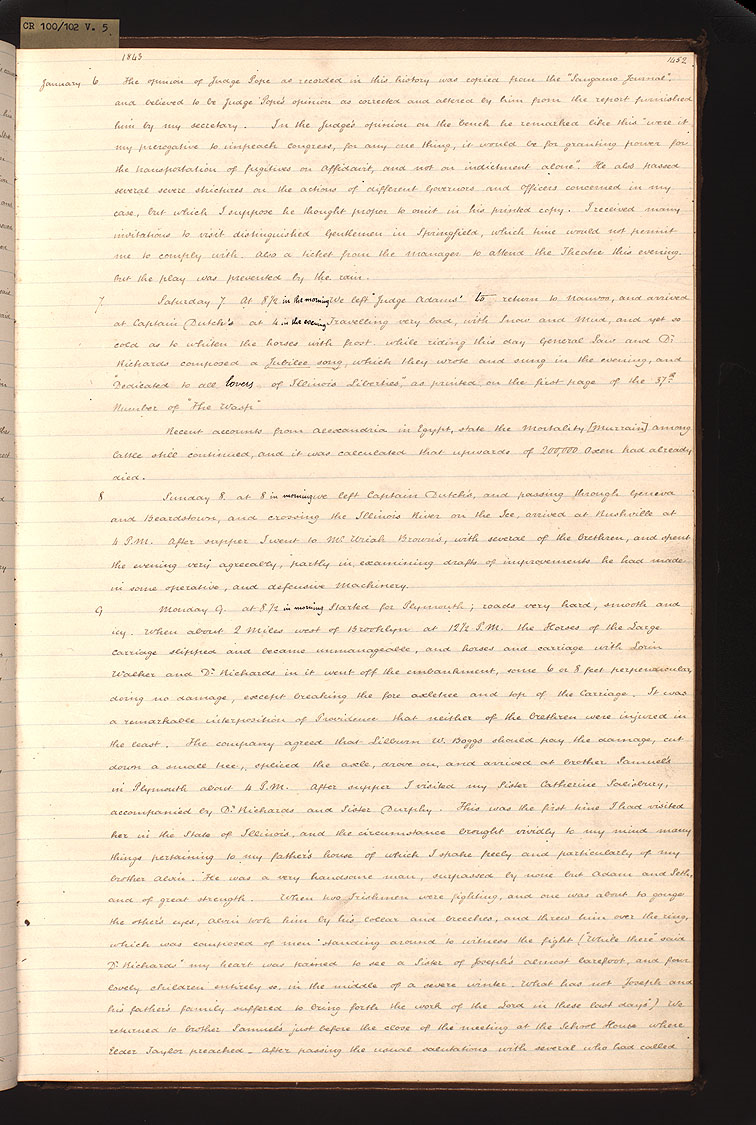 CR 100/102 V. 5
1843
1432
January 6 The opinion of Judge Pope as recorded in this history was copied from the "Sangamo Journal",
and believed to be Judge Pope's opinion as corrected and altered by him from the report furnished
him by my secretary. In the Judge's opinion on the bench he remarked like this "were it
my prerogative to impeach Congress, for any one thing, it would be for granting power for
the transportation of fugitives on affidavit, and not on indictment alone". He also passed
several severe strictures on the actions of different Governors and Officers concerned in my
case, but which I suppose he thought proper to omit in his printed copy. I received many
invitations to visit distinguished Gentlemen in Springfield, which time would not permit
me to comply with. Also a ticket from the manager to attend the Theatre this evening,
but the play was prevented by the rain.
7 Saturday 7 At 8½ in the morning We left Judge Adams' to return to Nauvoo, and arrived
at Captain Dutch's at 4 in the evening Travelling very bad, with Snow and Mud, and yet so
cold as to whiten the horses with frost. While riding this day General Law and Dr.
Richards composed a Jubilee song, which they wrote and sung in the evening, and
"Dedicated to all lovers of Illinois Liberties," as printed on the first page of the 37th
Number of "The Wasp"
Recent accounts from Alexandria in Egypt, state the Mortality [Murrain] among
Cattle still continued, and it was calculated that upwards of 200,000 Oxen had already
died.
8 Sunday 8. at 8 in morning we left Captain Dutch's, and passing through Geneva
and Beardstown, and crossing the Illinois River on the Ice, arrived at Rushville at
4 P.M. After supper I went to Mr. Uriah Brown's, with several of the brethren, and spent
the evening very agreeably, partly in examining drafts of improvements he had made
in some operative, and defensive Machinery.
9 Monday 9. at 8½ in morning Started for Plymouth; roads very hard, smooth and
icy. When about 2 miles west of Brooklyn at 12½ P.M. the Horses of the Large
carriage slipped and became unmanageable, and horses and carriage with Lorin
Walker and Dr. Richards in it went off the embankment, some 6 or 8 feet perpendicular,
doing no damage, except breaking the fore axletree and top of the Carriage. It was
a remarkable interposition of Providence that neither of the brethren were injured in
the least. The company agreed that Lilburn W. Boggs should pay the damage, cut
down a small tree, spliced the axle, drove on, and arrived at brother Samuel's
in Plymouth about 4 P.M. After supper I visited my Sister Catherine Salisbury,
accompanied by Dr. Richards and Sister Durphy. This was the first time I had visited
her in the State of Illinois, and the circumstance brought vividly to my mind many
things pertaining to my father's house of which I spake freely and particularly of my
brother Alvin. He was a very handsome man, surpassed by none but Adam and Seth,
and of great strength. When two Irishmen were fighting, and one was about to gouge
the other's eyes, Alvin took him by his collar and breeches, and threw him over the ring,
which was composed of men standing around to witness the fight ("While there" said
Dr. Richards "my heart was pained to see a Sister of Joseph's almost barefoot, and four
lovely children entirely so, in the middle of a severe winter. What has not Joseph and
his father's family suffered to bring forth the work of the Lord in these last days") We
returned to brother Samuel's just before the close of the meeting at the School House where
Elder Taylor preached. After passing the usual salutations with several who had called